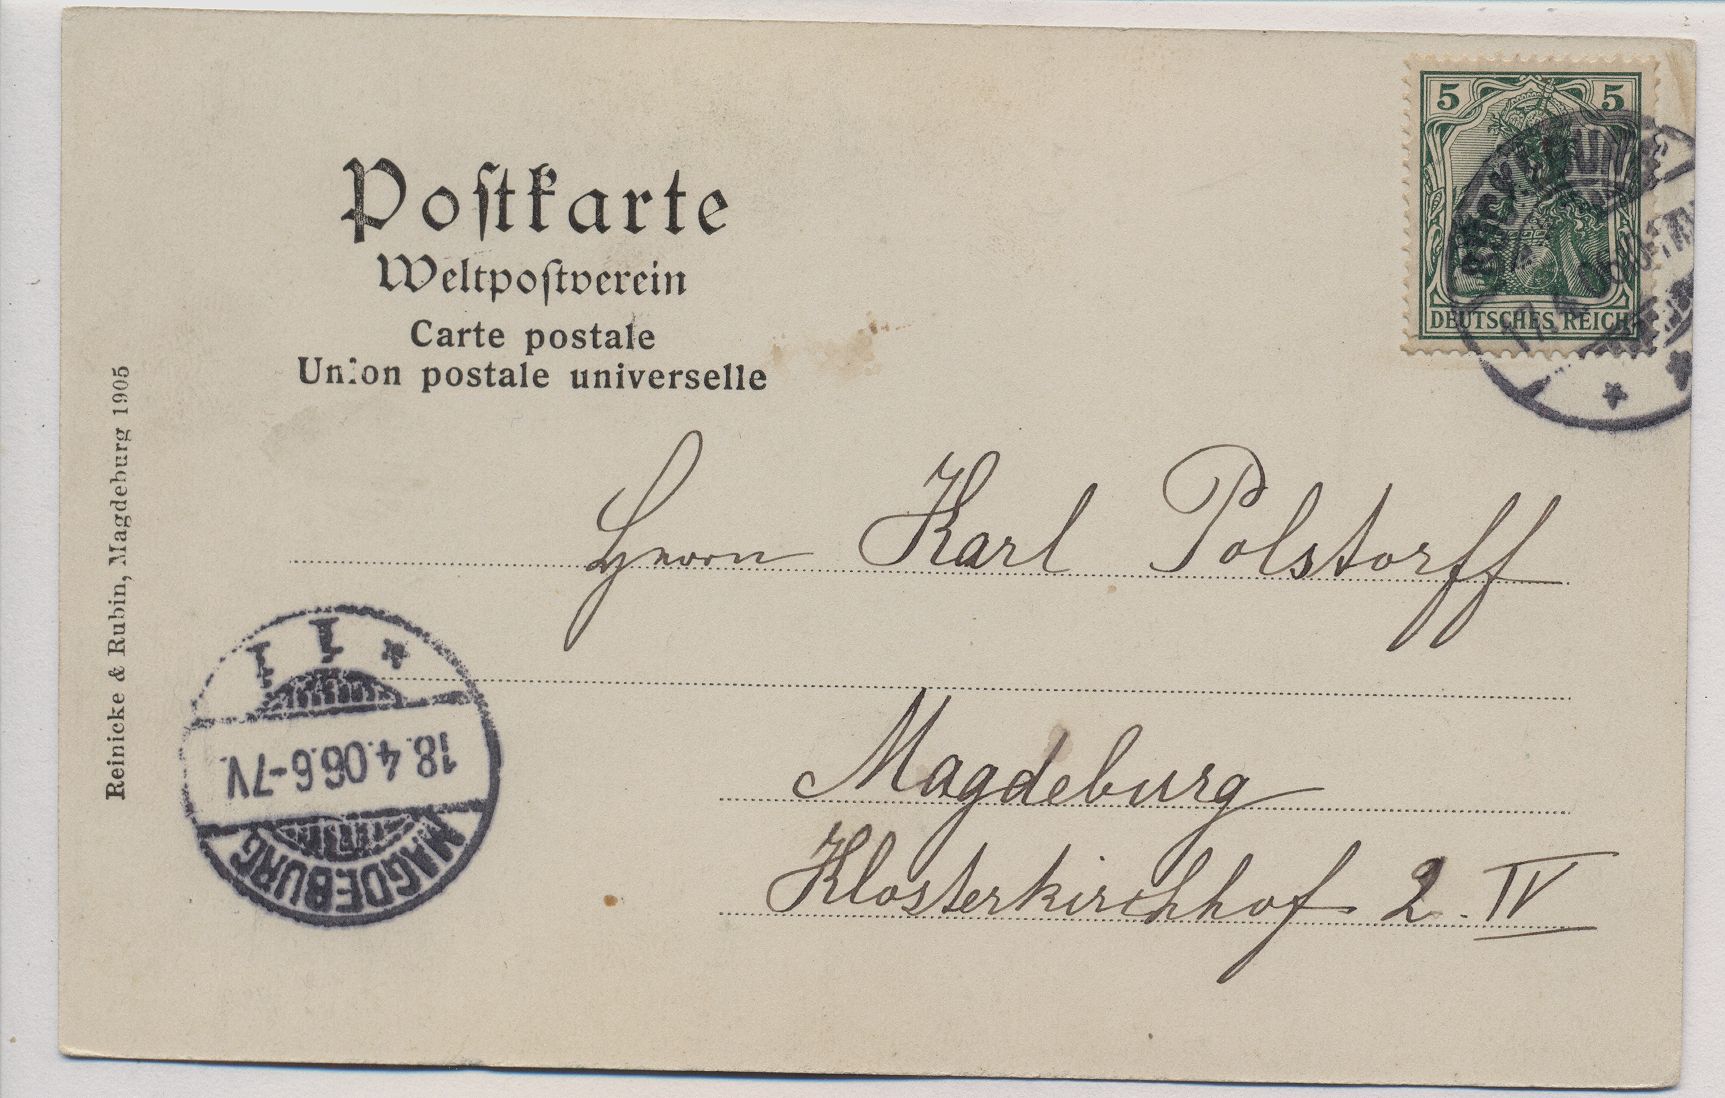 Poſtkarte
Weltpoſtverein
Carte postale
Union postale universelle
Reinicke & Rubin, Magdeburg 1905
5 5
DEUTSCHES REICH
17.4.06
Herrn Karl Polstorff
Magdeburg
Klosterkirchhof 2. IV
* 1 1
18.4.06.6-7V.
MAGDEBURG